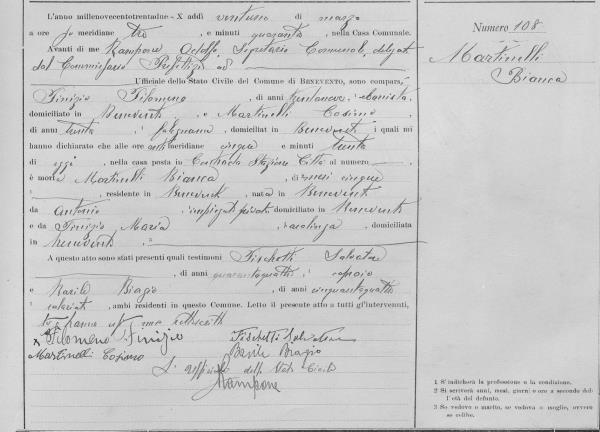 L'anno millenovecentotrentadue - X addì ventuno di marzo
a ore pomeridiane tre, e minuti quaranta, nella Casa Comunale.
Avanti di me Rampone Adolfo Segretario Comunale, delegato
dal Commissario Prefettizio ad
Ufficiale dello Stato Civile del Comune di BENEVENTO, sono comparsi
Finizio Filomeno, di anni trentanove,
domiciliato in Benevento e Martinelli Cosimo, di
di anni trenta, falegname, domiciliat in Benevento i quali mi
hanno dichiarato che alle ore antimeridiane cinque e minuti trenta
di oggi, nella casa posta in Contrada Stazione Città al numero
è morta Martinelli Bianca, di mesi cinque
, residente in Benevento, nata in Benevento
da Antonio, impiegato privato domiciliato in Benevento
e da Finizio Maria, casalinga, domiciliata
in Benevento
A questo atto sono stati presenti quali testimoni Fischetti Salvatore
, di anni quarantaquattro,
e Barile Biagio, di anni cinquantaquattro
, ambi residenti in questo Comune. Letto il presente atto a tutti gl'intervenuti,
hanno me sottoscritto
Filomeno Finizio Fischetti Salvatore
Martinelli Cosimo Barile Biagio
L'Ufficiale dello Stato Civile
Rampone
Numero 108
Martinelli
Bianca
1 S'indicherà la professione o la condizione.
2 Si scriverà anni, mesi, giorni o ore a seconda dell'età del defunto.
3 Se vedovo o marito, se vedova o moglie, ovvero se celibe.